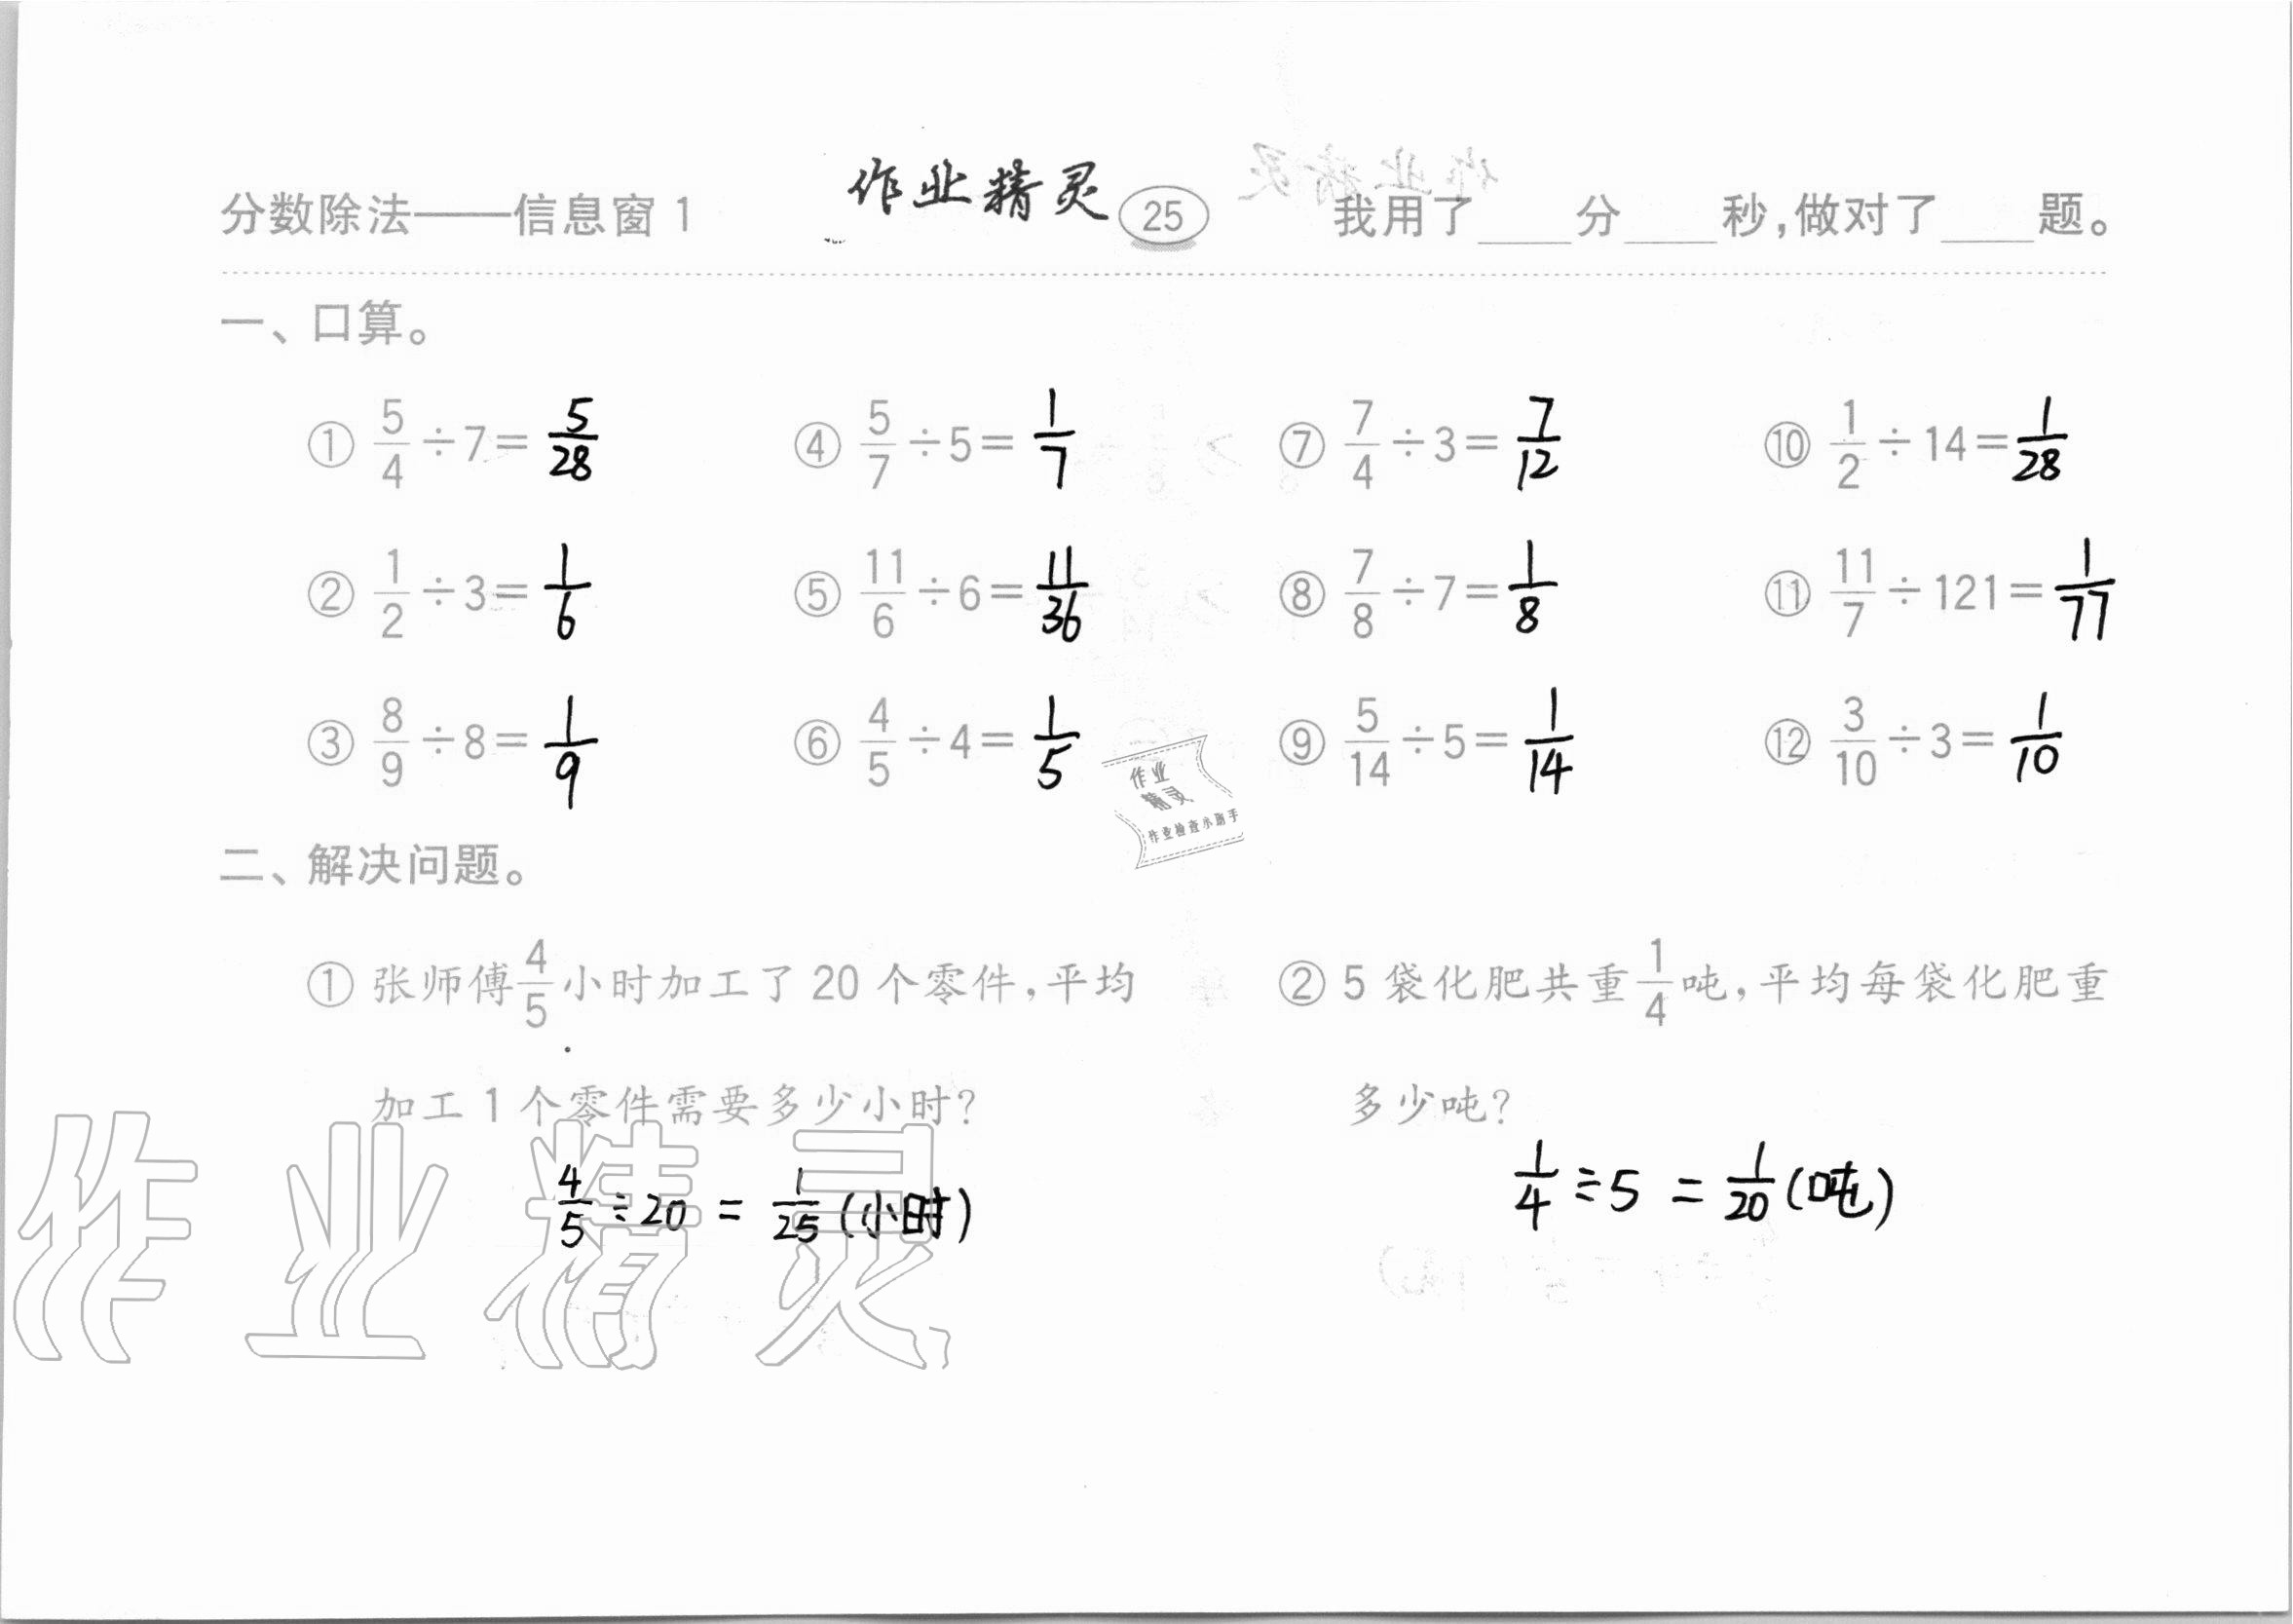 作业精灵
分数除法——信息窗 1 25 我用了____分____秒,做对了____题。
一、口算。
① 5/4÷7= 5/28 ④ 5/7÷5= 1/7 ⑦ 7/4÷3= 7/12 ⑩ 1/2÷14= 1/28
② 1/2÷3= 1/6 ⑤ 11/6÷6= 11/36 ⑧ 7/8÷7= 1/8 ⑪ 11/7÷121= 1/77
③ 8/9÷8= 1/9 ⑥ 4/5÷4= 1/5 ⑨ 5/14÷5= 1/14 ⑫ 3/10÷3= 1/10
作业
精灵
作业检查小助手
二、解决问题。
① 张师傅4/5小时加工了 20 个零件,平均
加工 1 个零件需要多少小时?
4/5÷20 = 1/25 (小时)
② 5 袋化肥共重1/4吨,平均每袋化肥重
多少吨?
1/4÷5 = 1/20 (吨)
作业精灵